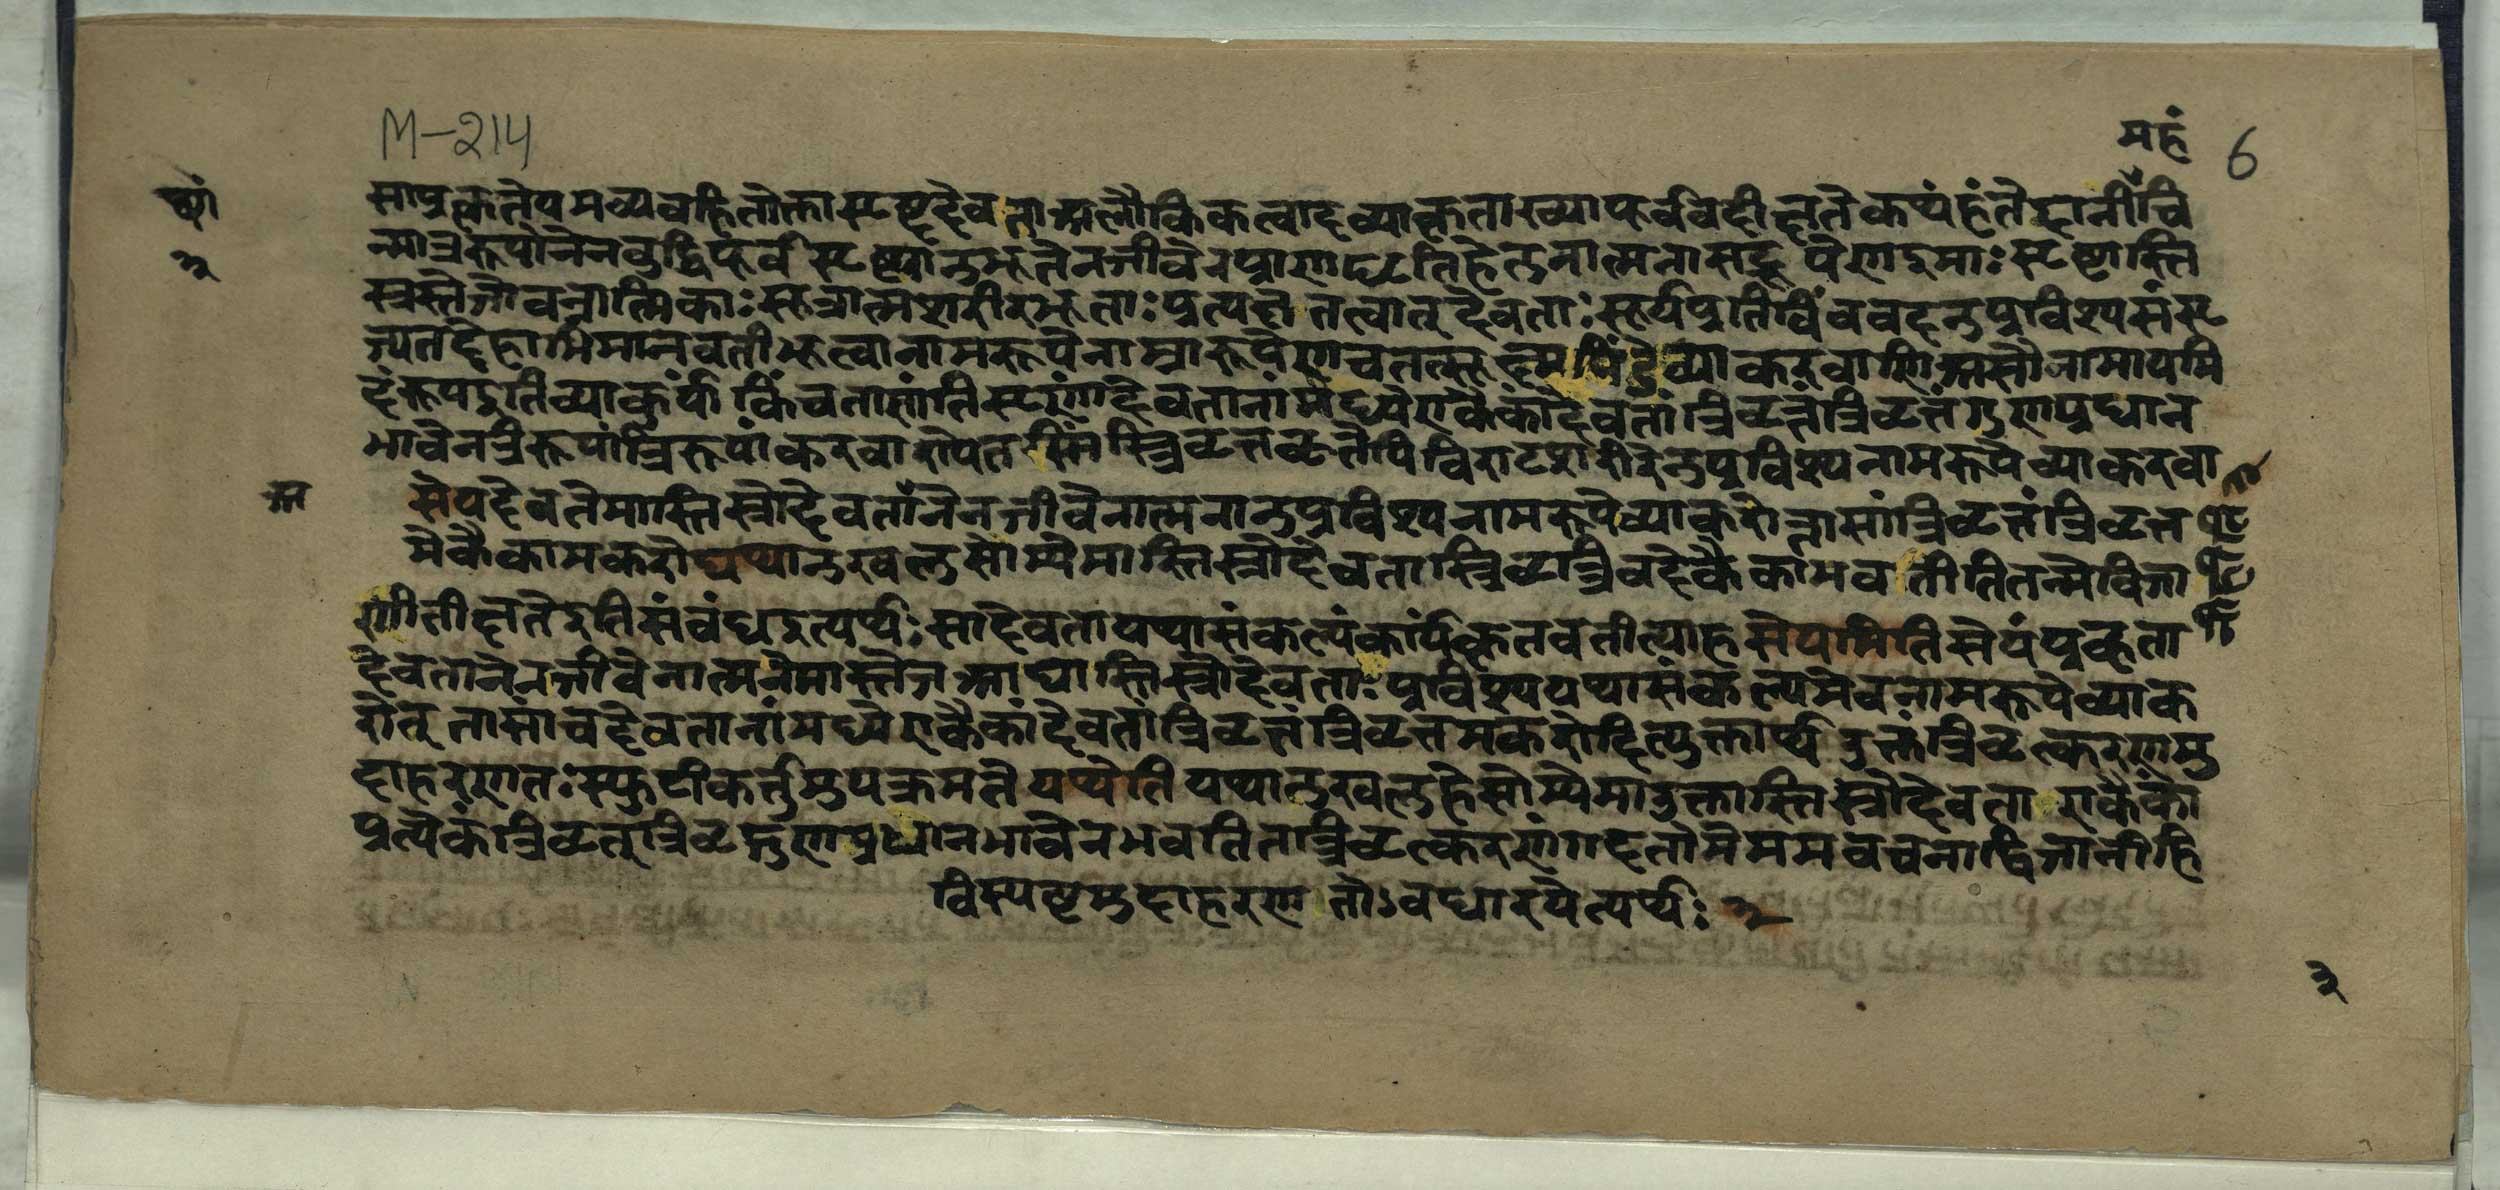 M-214
महं
6
ष्यां
साप्रकृतेयमव्यवहितोक्तास्रष्टृदेवताअलौकिकत्वादव्याकृताख्यापूर्ववदीक्षतेकथंहंतेदानींचि
न्मात्ररूपोनेनबुद्धिपूर्वसृष्ट्यानुभूतेनजीवेनप्राणधृतिहेतुनात्मनासद्रूपेणइमाः सृष्टास्ति
३
स्त्रस्तेजोवन्नात्मिकाः सूत्रात्मशरीरभूताः प्रत्यक्षेतत्वात् देवताः सूर्यप्रतिबिंबवदनुप्रविश्यसंसृ
ज्यतद्देहाभिमानवतीभूत्वानामरूपेनाम्नारूपेणचतत्सूक्ष्म व्याकरवाणिअसौनामायमि
दंरूपइतिव्याकुर्यांकिंचतासांतिसृणांदेवतानांमध्येएकैकांदेवतांत्रिवृतंत्रिवृतंगुणप्रधान
भावेनत्रिरूपांत्रिरूपांकरवाणेयतस्मिंस्त्रिवृत्तवृतेपिविराट्शरीरेनुप्रविश्यनामरूपेव्याकरवा
अ
सेयंदेवतेमास्तिस्त्रोदेवताअनेनजीवेनात्मनानुप्रविश्यनामरूपेव्याकरोत्तासांत्रिवृतंत्रिवृत
मेकैकामकरोद्यथानुखलुसोम्येमास्तिस्त्रोदेवतास्त्रिवृत्त्रिवृदेकैकाभवतीतितन्मेविजा
णीतीक्षतेइतिसंबंधइत्यर्थः सादेवतायथासंकल्पंकार्यंकृतवतीत्याहसेयमितिसेयंप्रकृता
देवतानेनजीवेनात्मनेमास्तेजआद्यास्तिस्त्रोदेवताः प्रविश्ययथासंकल्पमेवनामरूपेव्याक
रोत् तासांचदेवतानांमध्येएकैकांदेवतांत्रिवृतंत्रिवृतमकरोदित्युक्तार्थ्यउक्तंत्रिवृत्करणमु
दाहरणतः स्फुटीकर्त्तुमुपक्रमतेयथेतियथानुखलुहेसोम्येमाउक्तास्तिस्त्रोदेवताएकैका
प्रत्येकंत्रिवृत् त्रिवृद्गुणप्रधानभावेनभवतितत्त्रिवृत्करणंगदतोमेममवचनाद्विजानीहि
विस्पष्टमुदाहरणतोऽवधारयेत्यर्थः ३
३